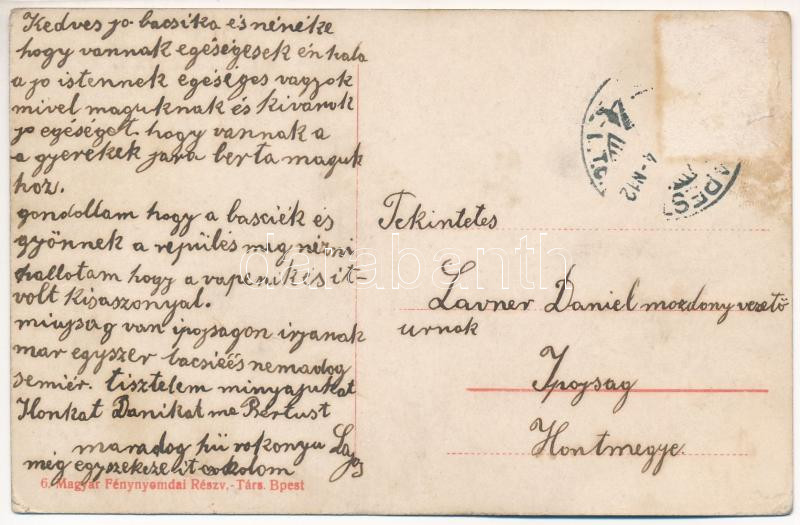 Kedves jo bacsika és nénike
hogy vannak egéségesek én hala
a jo istennek egéséges vagyok
mivel maguknak és kivánok
jo egéséget. hogy vannak a
a gyerekek jara berta maguk
hoz.
gondollam hogy a basciék és
gyönnek a repülés meg nézni
hallotam hogy a vapenik és it-
volt kisaszonyal.
miujsag van ipojsagon irjanak
mar egyszer bacsiéés nemadog
semiér. tisztelem minyajukat
Ilonkat Danikat me Bertust
maradog hü rokonyu Lajos
még egyszer keze it csokolom
6. Magyar Fénynyomdai Részv.-Társ. Bpest
Tekintetes
Lavner Daniel mozdony vezetö
urnak
Ipojsag
Hontmegye
darabanth